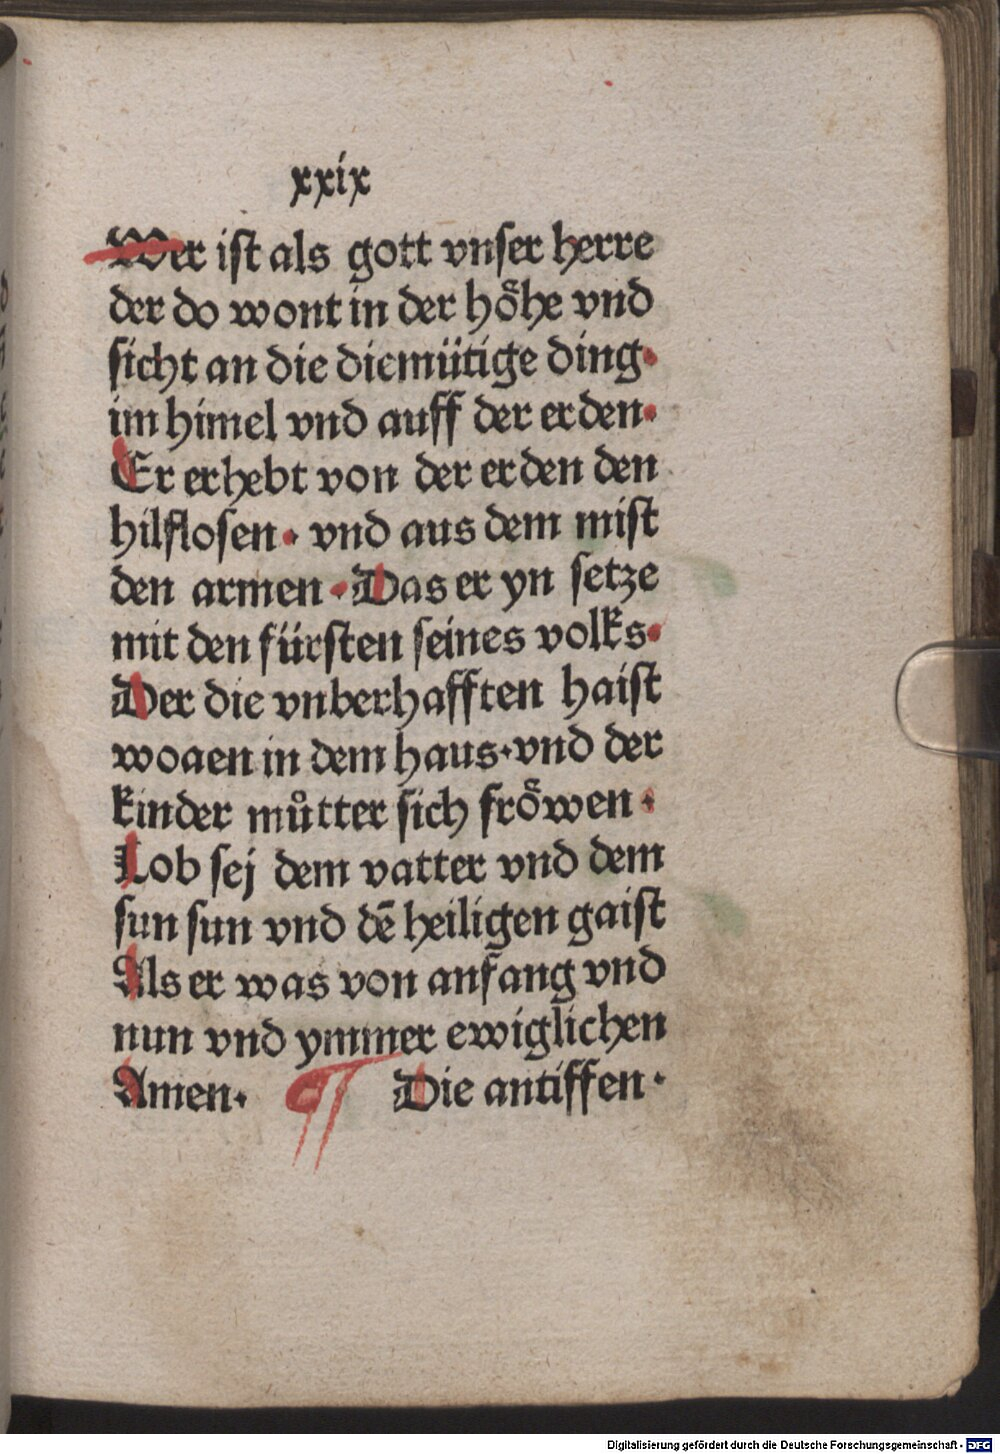 xxix
Wer ist als gott vnser herre
der do wont in der hoͤhe vnd
sicht an die diemütige ding·
im himel vnd auff der erden·
Er erhebt von der erden den
hilflosen· vnd aus dem mist
den armen· Das er yn setze
mit den fürsten seines volks·
Der die vnberhafften haist
woaen in dem haus·vnd der
kinder můtter sich froͤwen·
Lob sej dem vatter vnd dem
sun sun vnd dē heiligen gaist
Als er was von anfang vnd
nun vnd ymmer ewiglichen
Amen· ¶ Die antiffen·
Digitalisierung gefördert durch die Deutsche Forschungsgemeinschaft - DFG